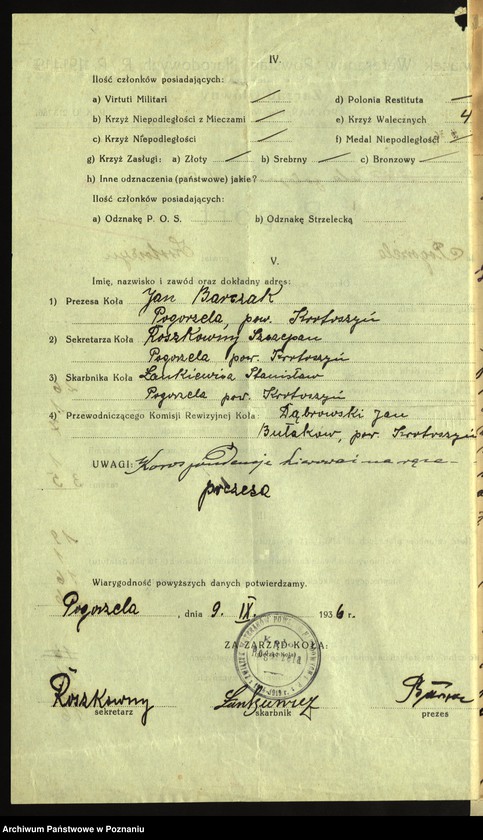 IV.
Ilość członków posiadających:
a) Virtuti Militari — d) Polonia Restituta —
b) Krzyż Niepodległości z Mieczami — e) Krzyż Walecznych 4
c) Krzyż Niepodległości — f) Medal Niepodległości —
g) Krzyż Zasługi: a) Złoty — b) Srebrny — c) Bronzowy —
h) Inne odznaczenia (państwowe) jakie?
Ilość członków posiadających:
a) Odznakę P. O. S. b) Odznakę Strzelecką
V.
Imię, nazwisko i zawód oraz dokładny adres:
1) Prezesa Koła Jan Barczak
Pogorzela, pow. Krotoszyń
2) Sekretarza Koła Roszkowny Szczepan
Pogorzela pow. Krotoszyń
3) Skarbnika Koła Lankiewisz Stanisław
Pogorzela pow. Krotoszyń
4) Przewodniczącego Komisji Rewizyjnej Koła: Dąbrowski Jan
Bułakow, pow. Krotoszyń
UWAGI: Korespondencje kierować na ręce
prezesa
Wiarygodność powyższych danych potwierdzamy.
Pogorzela, dnia 9. IX. 1936 r.
ZA ZARZĄD KOŁA:
Koło
Pogorzela
Roszkowny Lankiewicz
sekretarz skarbnik prezes
Archiwum Państwowe w Poznaniu